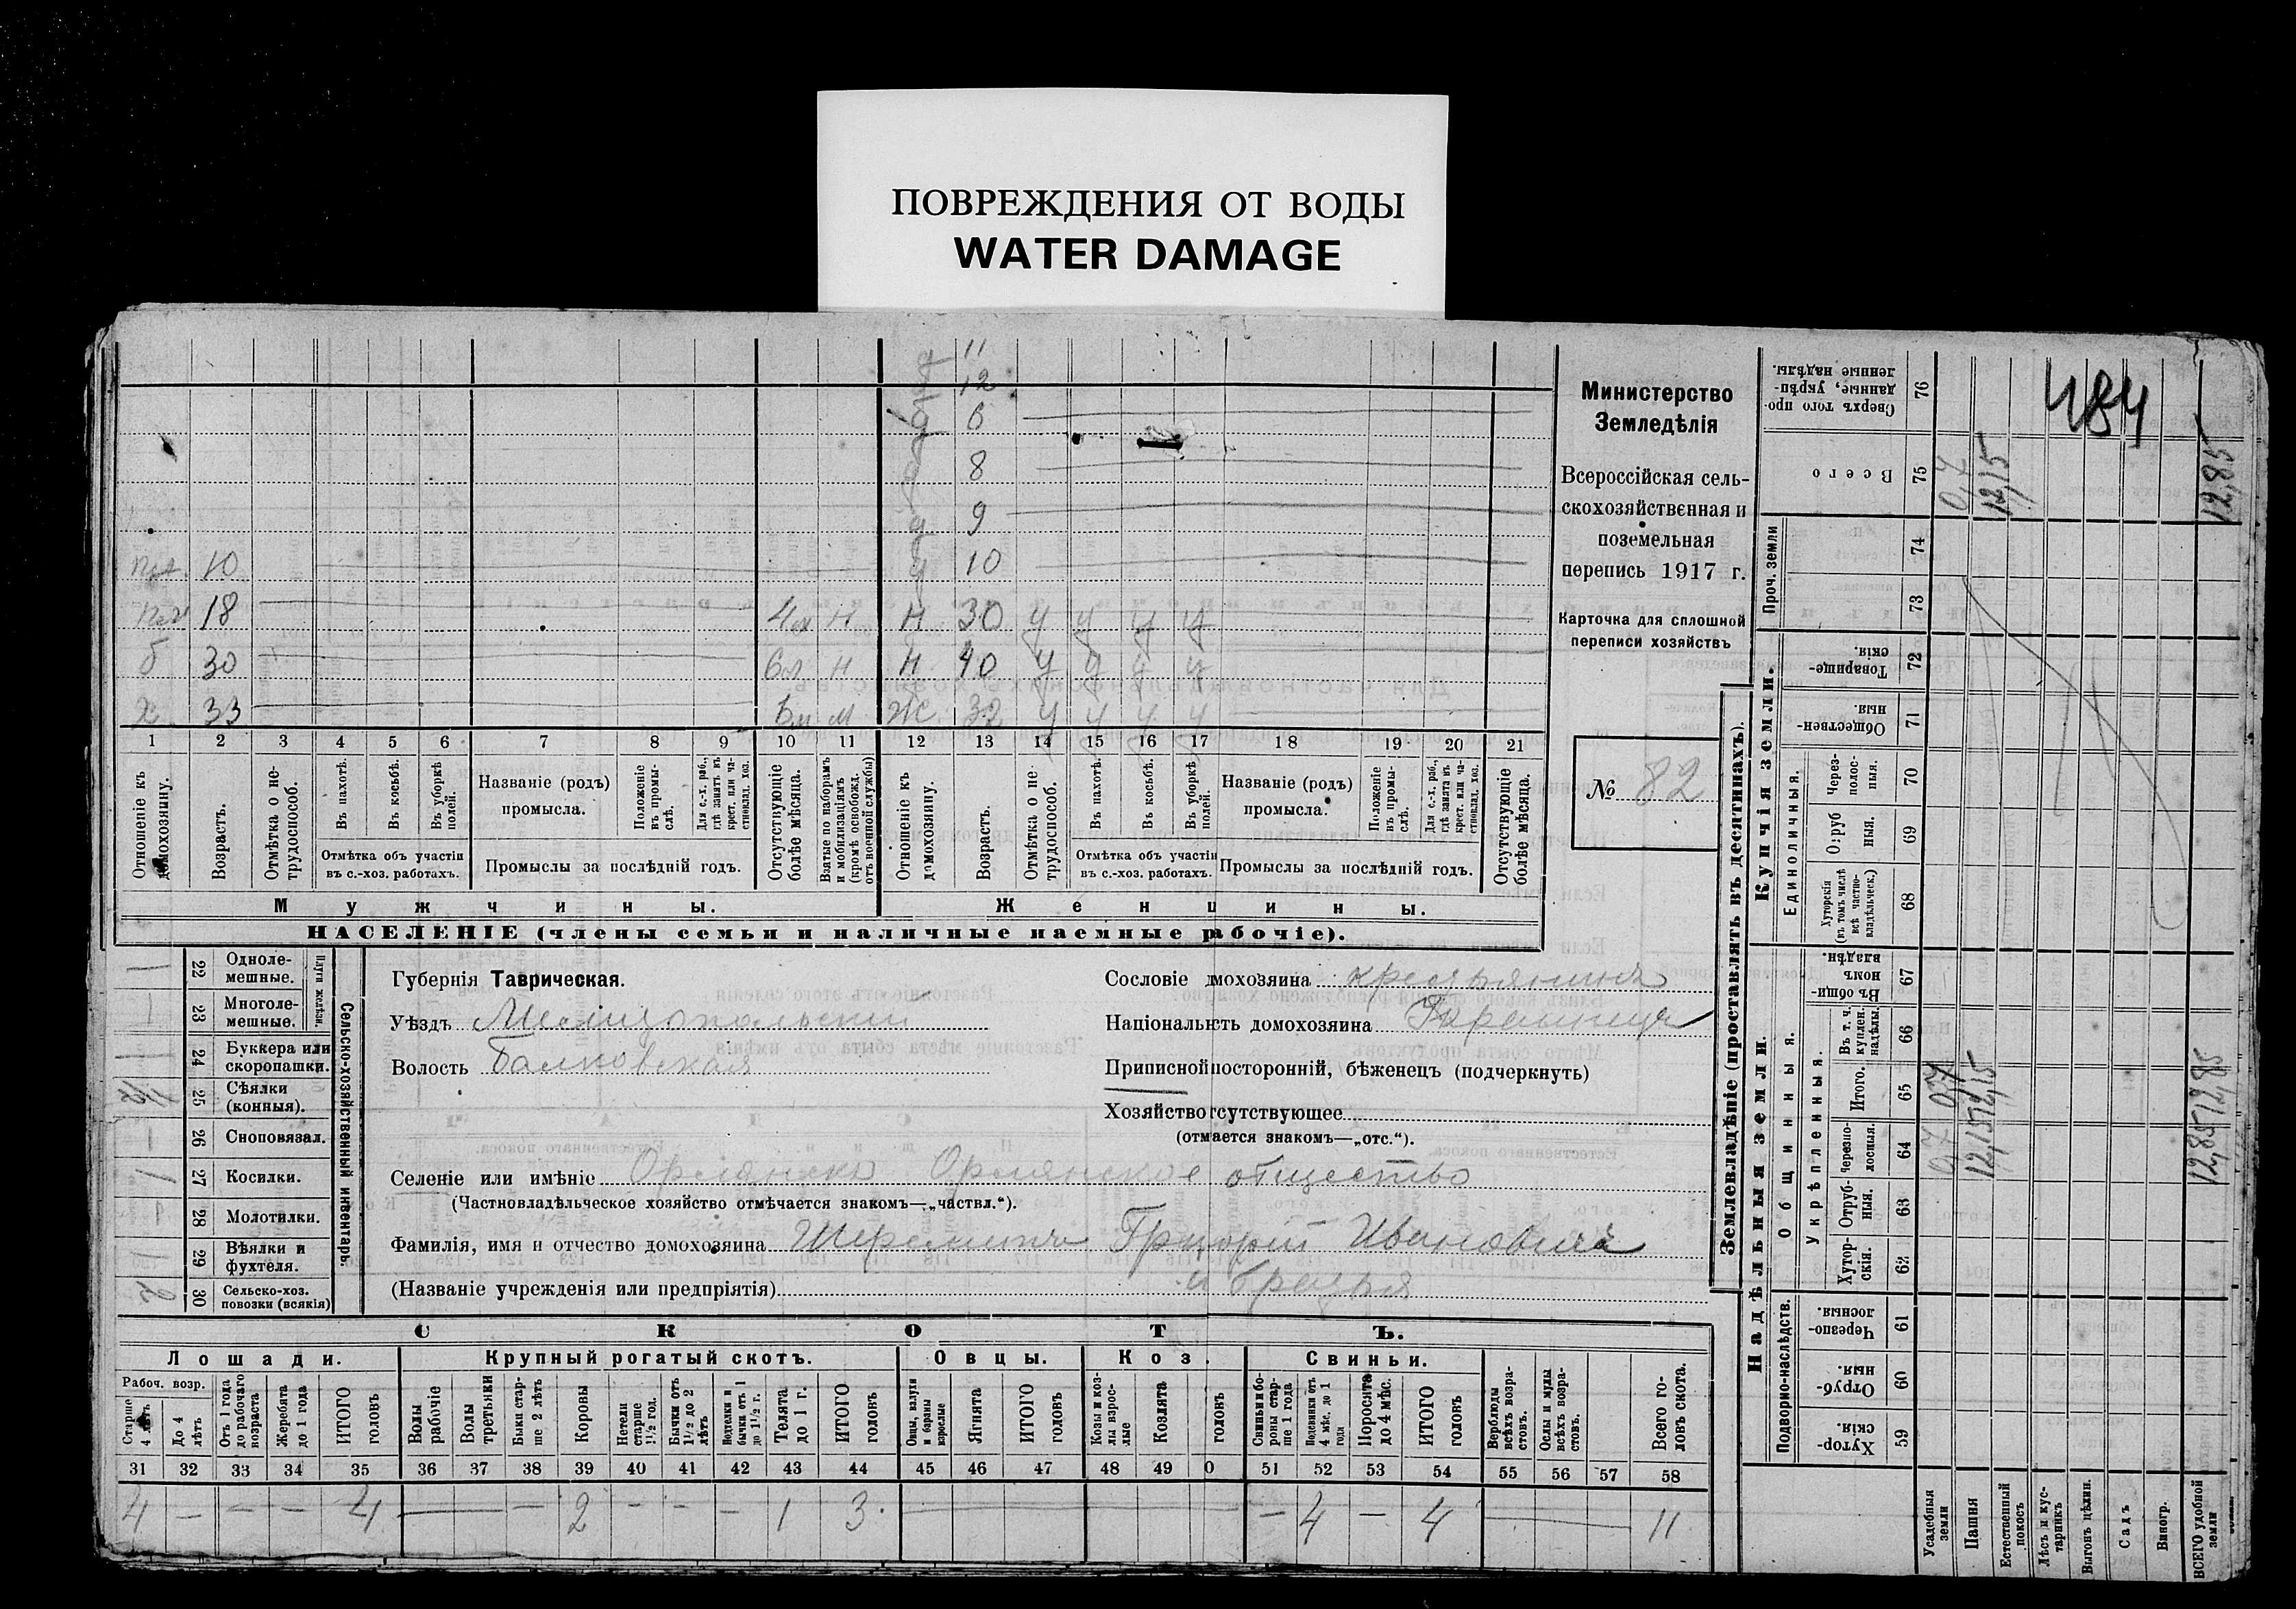 ПОВРЕЖДЕНИЯ ОТ ВОДЫ
WATER DAMAGE
11
12
6
8
9
10 10
18 Н 30 у у у у
б 30 Н 40 у у у у
х 33 Ж 32 у у у у
1 2 3 4 5 6 7 8 9 10 11 12 13 14 15 16 17 18 19 20 21
Отношеніе къ домохозяину.
Возрастъ.
Отмѣтка о нетрудоспособ.
Въ пахотѣ.
Въ косьбѣ.
Въ уборкѣ полей.
Отмѣтка объ участіи въ с.-хоз. работахъ.
Названіе (родъ) промысла.
Положеніе въ промыслѣ.
Для с.-х. раб., гдѣ занятъ въ крест. или частновлад. хоз.
Промыслы за послѣдній годъ.
Отсутствующіе болѣе мѣсяца.
Взятые по наборамъ и мобилизаціямъ (кромѣ освобожд. отъ военной службы)
Отношеніе къ домохозяину.
Возрастъ.
Отмѣтка о не трудоспособ.
Въ пахотѣ.
Въ косьбѣ.
Въ уборкѣ полей.
Отмѣтка объ участіи въ с.-хоз. работахъ.
Названіе (родъ) промысла.
Положеніе въ промыслѣ.
Для с.-х. раб., гдѣ занятъ въ крест. или частновлад. хоз.
Промыслы за послѣдній годъ.
Отсутствующіе болѣе мѣсяца.
Мужчины.
Женщины.
НАСЕЛЕНІЕ (члены семьи и наличные наемные рабочіе).
Министерство
Земледѣлія
Всероссійская сель-
скохозяйственная и
поземельная
перепись 1917 г.
Карточка для сплошной
переписи хозяйствъ
№ 82
Сельско-хозяйственный инвентарь.
Плуги желѣзн.
22 Однолемешные. 1
23 Многолемешные. 1
24 Буккера или скоропашки. 1
25 Сѣялки (конныя). 1/2
26 Сноповязал. 1
27 Косилки. 1
28 Молотилки.
29 Вѣялки и фухтеля. 1
30 Сельско-хоз. повозки (всякія) 2
Губернія Таврическая.
Уѣздъ Мелитопольскій
Волость Балковская
Сословіе домохозяина крестьянинъ
Національность домохозяина Украинецъ
Приписной посторонній, бѣженецъ (подчеркнуть)
Хозяйство отсутствующее
(отмается знакомъ—„отс.“).
Селеніе или имѣніе Орлянскъ Орлянское общество
(Частновладѣльческое хозяйство отмѣчается знакомъ—„частвл.“).
Фамилія, имя и отчество домохозяина Шереметъ Григорій Ивановичъ
и братья
(Названіе учрежденія или предпріятія)
СКОТЪ.
Лошади. Крупный рогатый скотъ. Овцы. Коз. Свиньи.
Рабоч. возр.
Старше 4 лѣтъ
До 4 лѣтъ
Отъ 1 года до рабочаго возраста
Жеребята до 1 года
ИТОГО головъ
Волы рабочіе
Волы третьяки
Быки старше 2 лѣтъ
Коровы
Нетели старше 1½ год.
Бычки отъ 1½ до 2 лѣтъ
Подтелки и бычки отъ 1 до 1½ г.
Телята до 1 г.
ИТОГО головъ
Овцы, валухи и бараны взрослые
Ягнята
ИТОГО головъ
Козы и козлы взрослые
Козлята
головъ
Свиньи и бороны старше 1 года
Подсвинки отъ 4 мѣс. до 1 года
Поросята до 4 мѣс.
ИТОГО головъ
Верблюды всѣхъ возрастовъ.
Ослы и мулы всѣхъ возрастовъ.
Всего головъ скота.
31 32 33 34 35 36 37 38 39 40 41 42 43 44 45 46 47 48 49 0 51 52 53 54 55 56 57 58
4 — — — 4 — — — 2 — — — 1 3 — 4 — 4 — 11
Землевладѣніе (проставлять въ десятинахъ).
Купчія земли.
Единоличныя.
Надѣльныя земли.
Общинныя.
Укрѣпленныя.
Подворно-наслѣдств.
Проч. земли
76 Сверхъ того проданные, укрѣпленные надѣлы.
75 Всего
74
73
72 Товарищескія.
71 Общественныя.
70 Черезполосныя.
69 Отрубныя.
68 Хуторскія (въ томъ числѣ всѣ частновладѣльческ.)
67 Въ общинномъ владѣн.
66 Въ т. ч. куплен. надѣлы.
65 Итого.
64 Черезполосныя.
63 Отрубныя.
62 Хуторскія.
61 Черезполосныя
60 Отрубныя
59 Хуторскія
484
0,7 12,15 12,85
0,7 12,15 12,85
0,7 12,15 12,85
Усадебныя земли
Пашня
Естественный покосъ
Лѣсъ и кустарникъ
Выгонъ цѣлин.
Садъ
Виногр.
ВСЕГО удобной земли